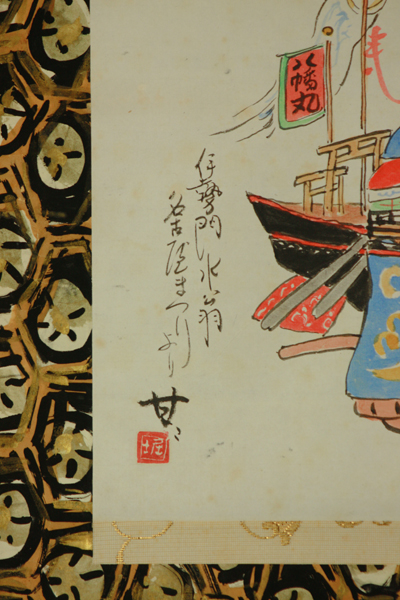 八幡丸
伊勢門水翁
名古屋まつりより